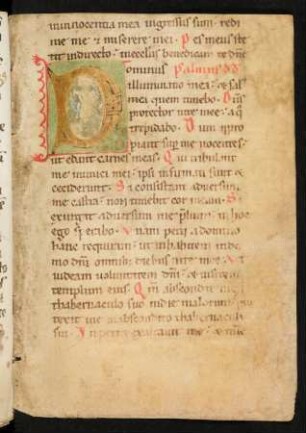 in innocentia mea ingressus sum redi
me me et miserere mei Pes meus ste
tit in directo in ecclesiis benedicam te dne
Dominus Psalmus
illuminatio mea et sal
mei quem timebo Dns
protector uite mee a q
trepidabo Dum appro
piant sup me nocentes
ut edant carnes meas Qui tribulant
me inimici mei ipsi infirmati sunt et
ceciderunt Si consistant aduersum
me castra non timebit cor meum Si
exurgat aduersum me plium in hoc
ego spabo Vnam petii a domino
hanc requiram ut inhabitem in do
mo dni omnib; diebus uite mee Vt
uideam uoluntatem dni et uisitem
templum eius Qm abscondit me
thabernaculo suo in die malorum
texit me in abscondito thabernaculi
sui In petra exaltauit me et nunc